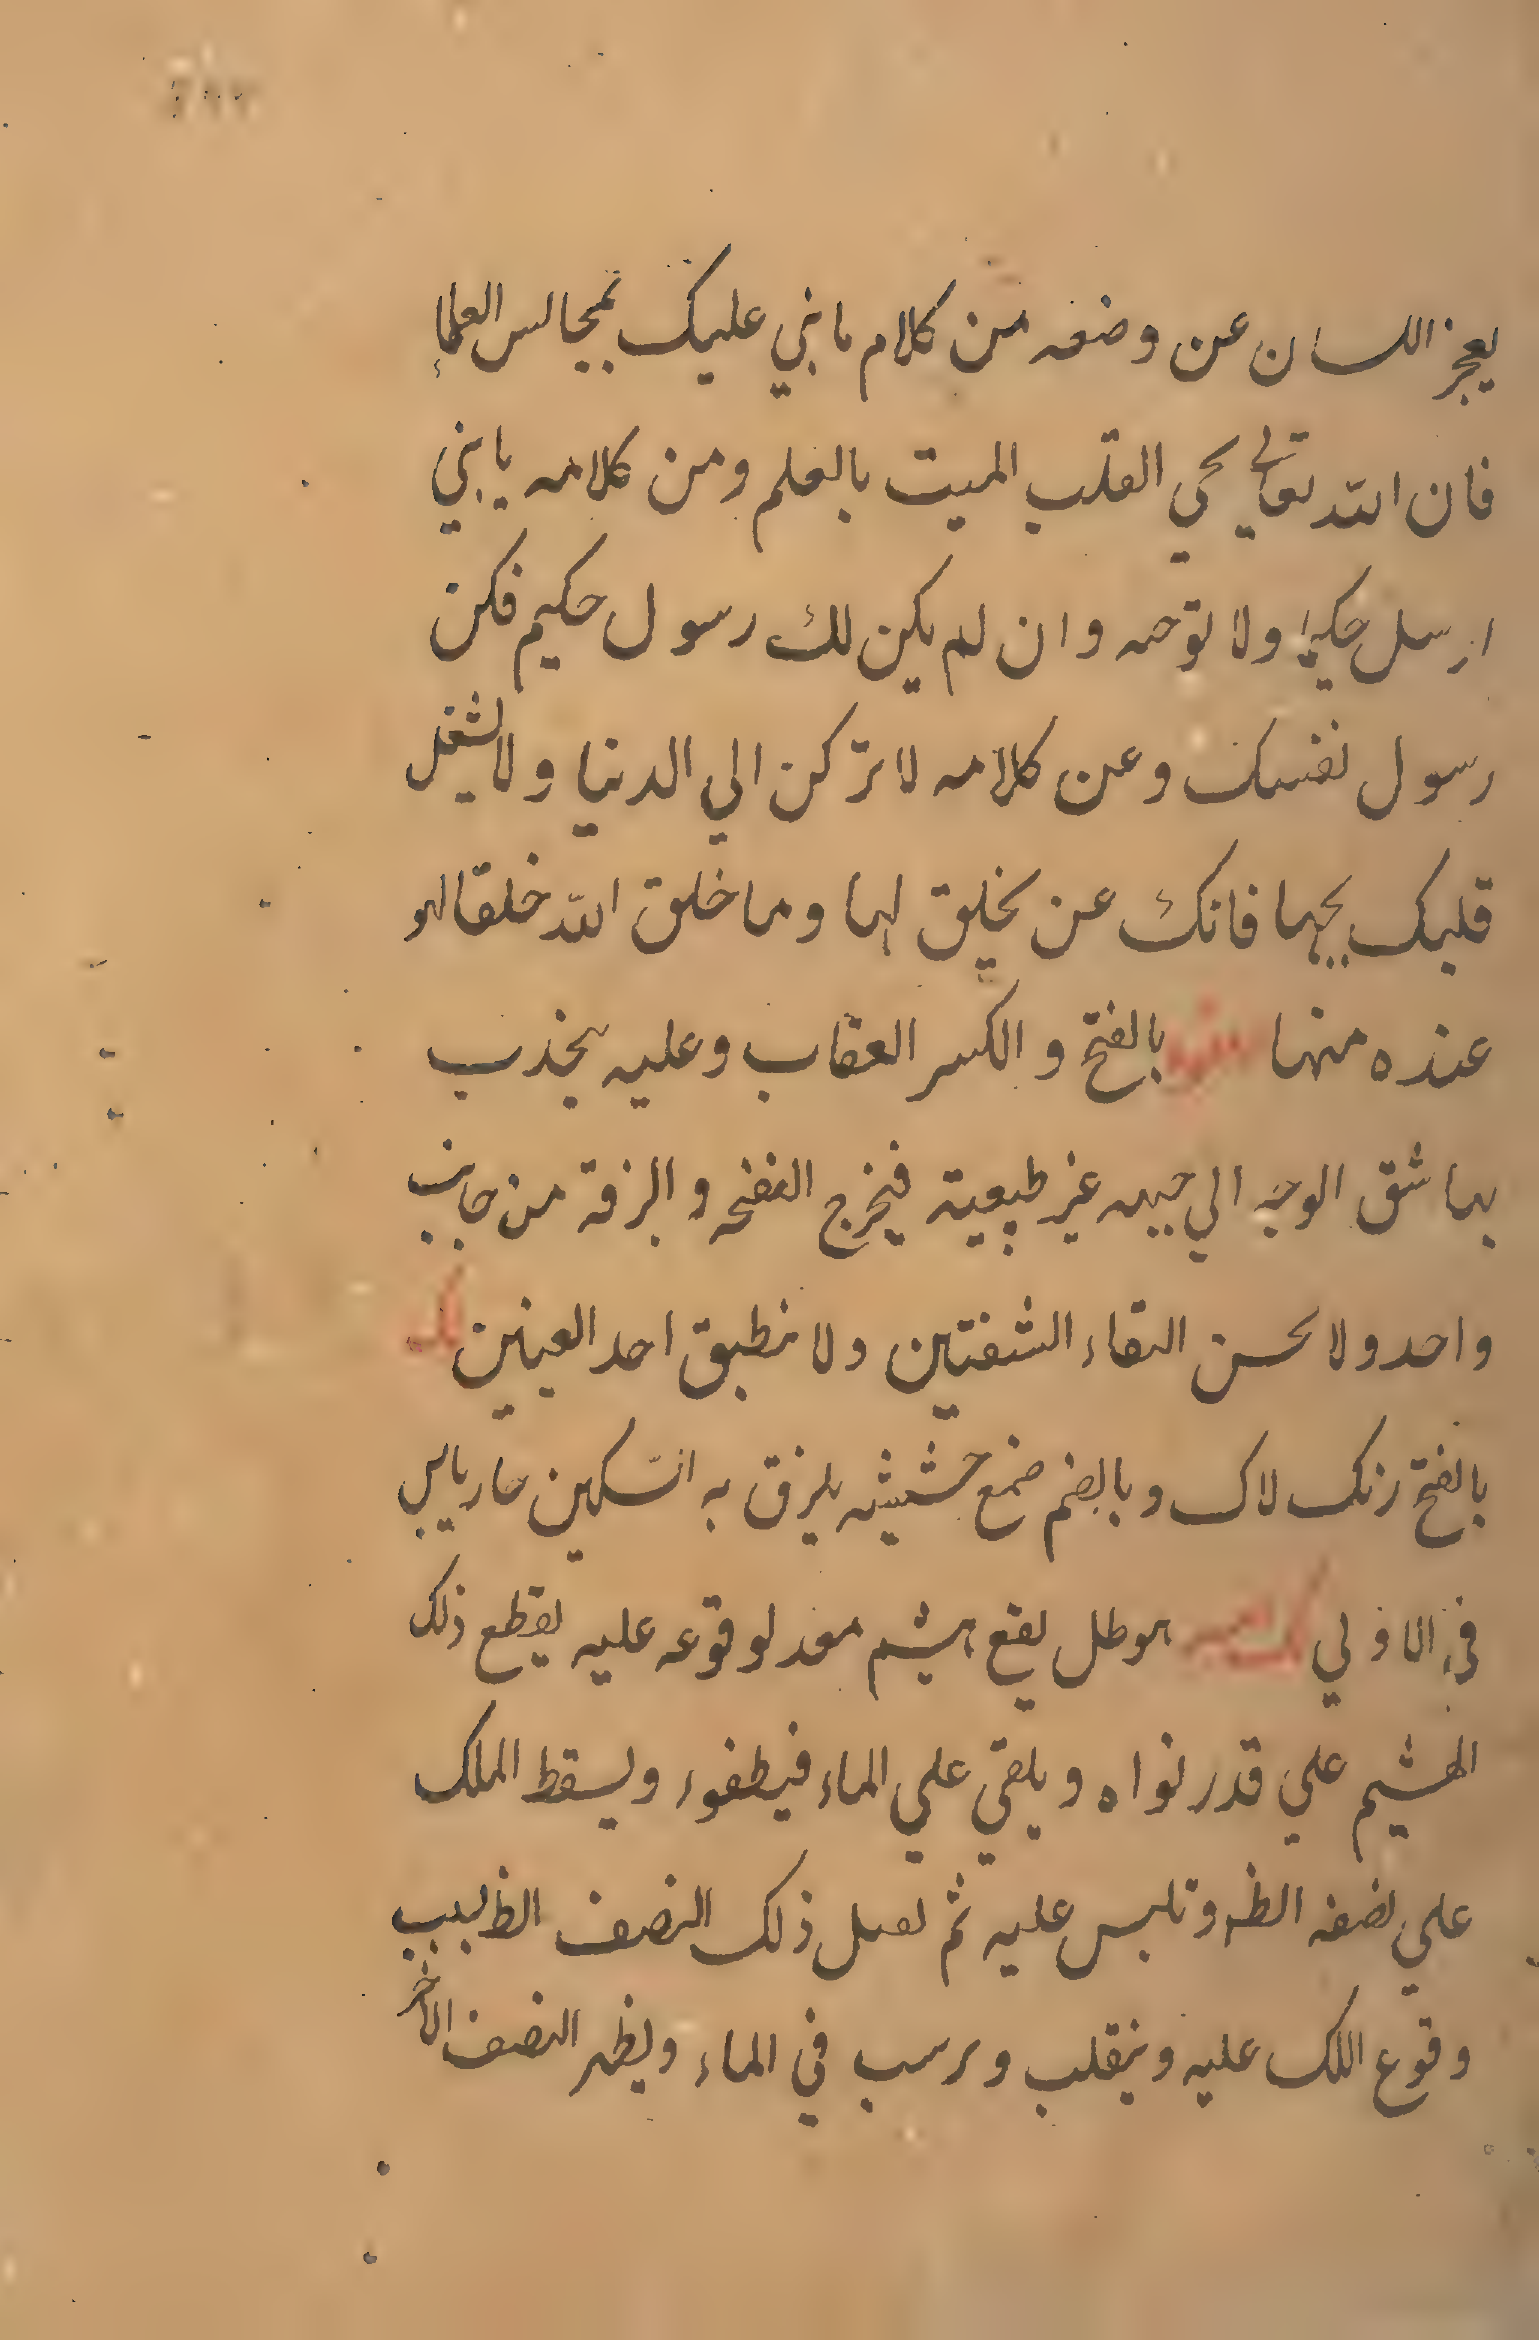 يعجز اللسان عن وصفه من كلام مابني عليك بمجالس العلماء
فان الله تعالي يحي القلب الميت بالعلم ومن كلامه يابني
ارسل حكيما ولا توصه وان لم يكن لك رسول حكيم فكن
رسول نفسك وعن كلامه لا تركن الي الدنيا ولا تشغل
قلبك بحبها فانك عن يخلق لها وما خلق الله خلقا اهو
عنده منها بالفتح والكسر العقاب وعليه يجذب
بها شق الوجه الي جهه غير طبيعية فيخرج النفخه والبزقة من جانب
واحد ولا يحسن التقاء الشفتين ولا ينطبق احد العينين لك
بالفتح رنك لاك وبالضم صمغ حشيشه يلزق به السكين حار يابس
في الاولي هو طل يقع هشيم معد لوقوعه عليه يقطع ذلك
الهشيم علي قدر نواه ويلقي علي الماء فيطفوء ويسقط الملك
علي نصفه الظ وتلبس عليه ثم ذلك النصف الظ لبب
وقوع اللك عليه وينقلب ويرسب في الماء ويظهر النصف الاخر